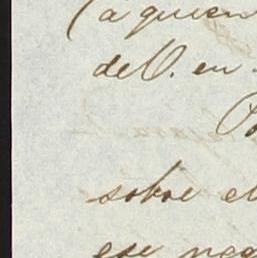 (a quien
de V. en
sobre el
ese neg